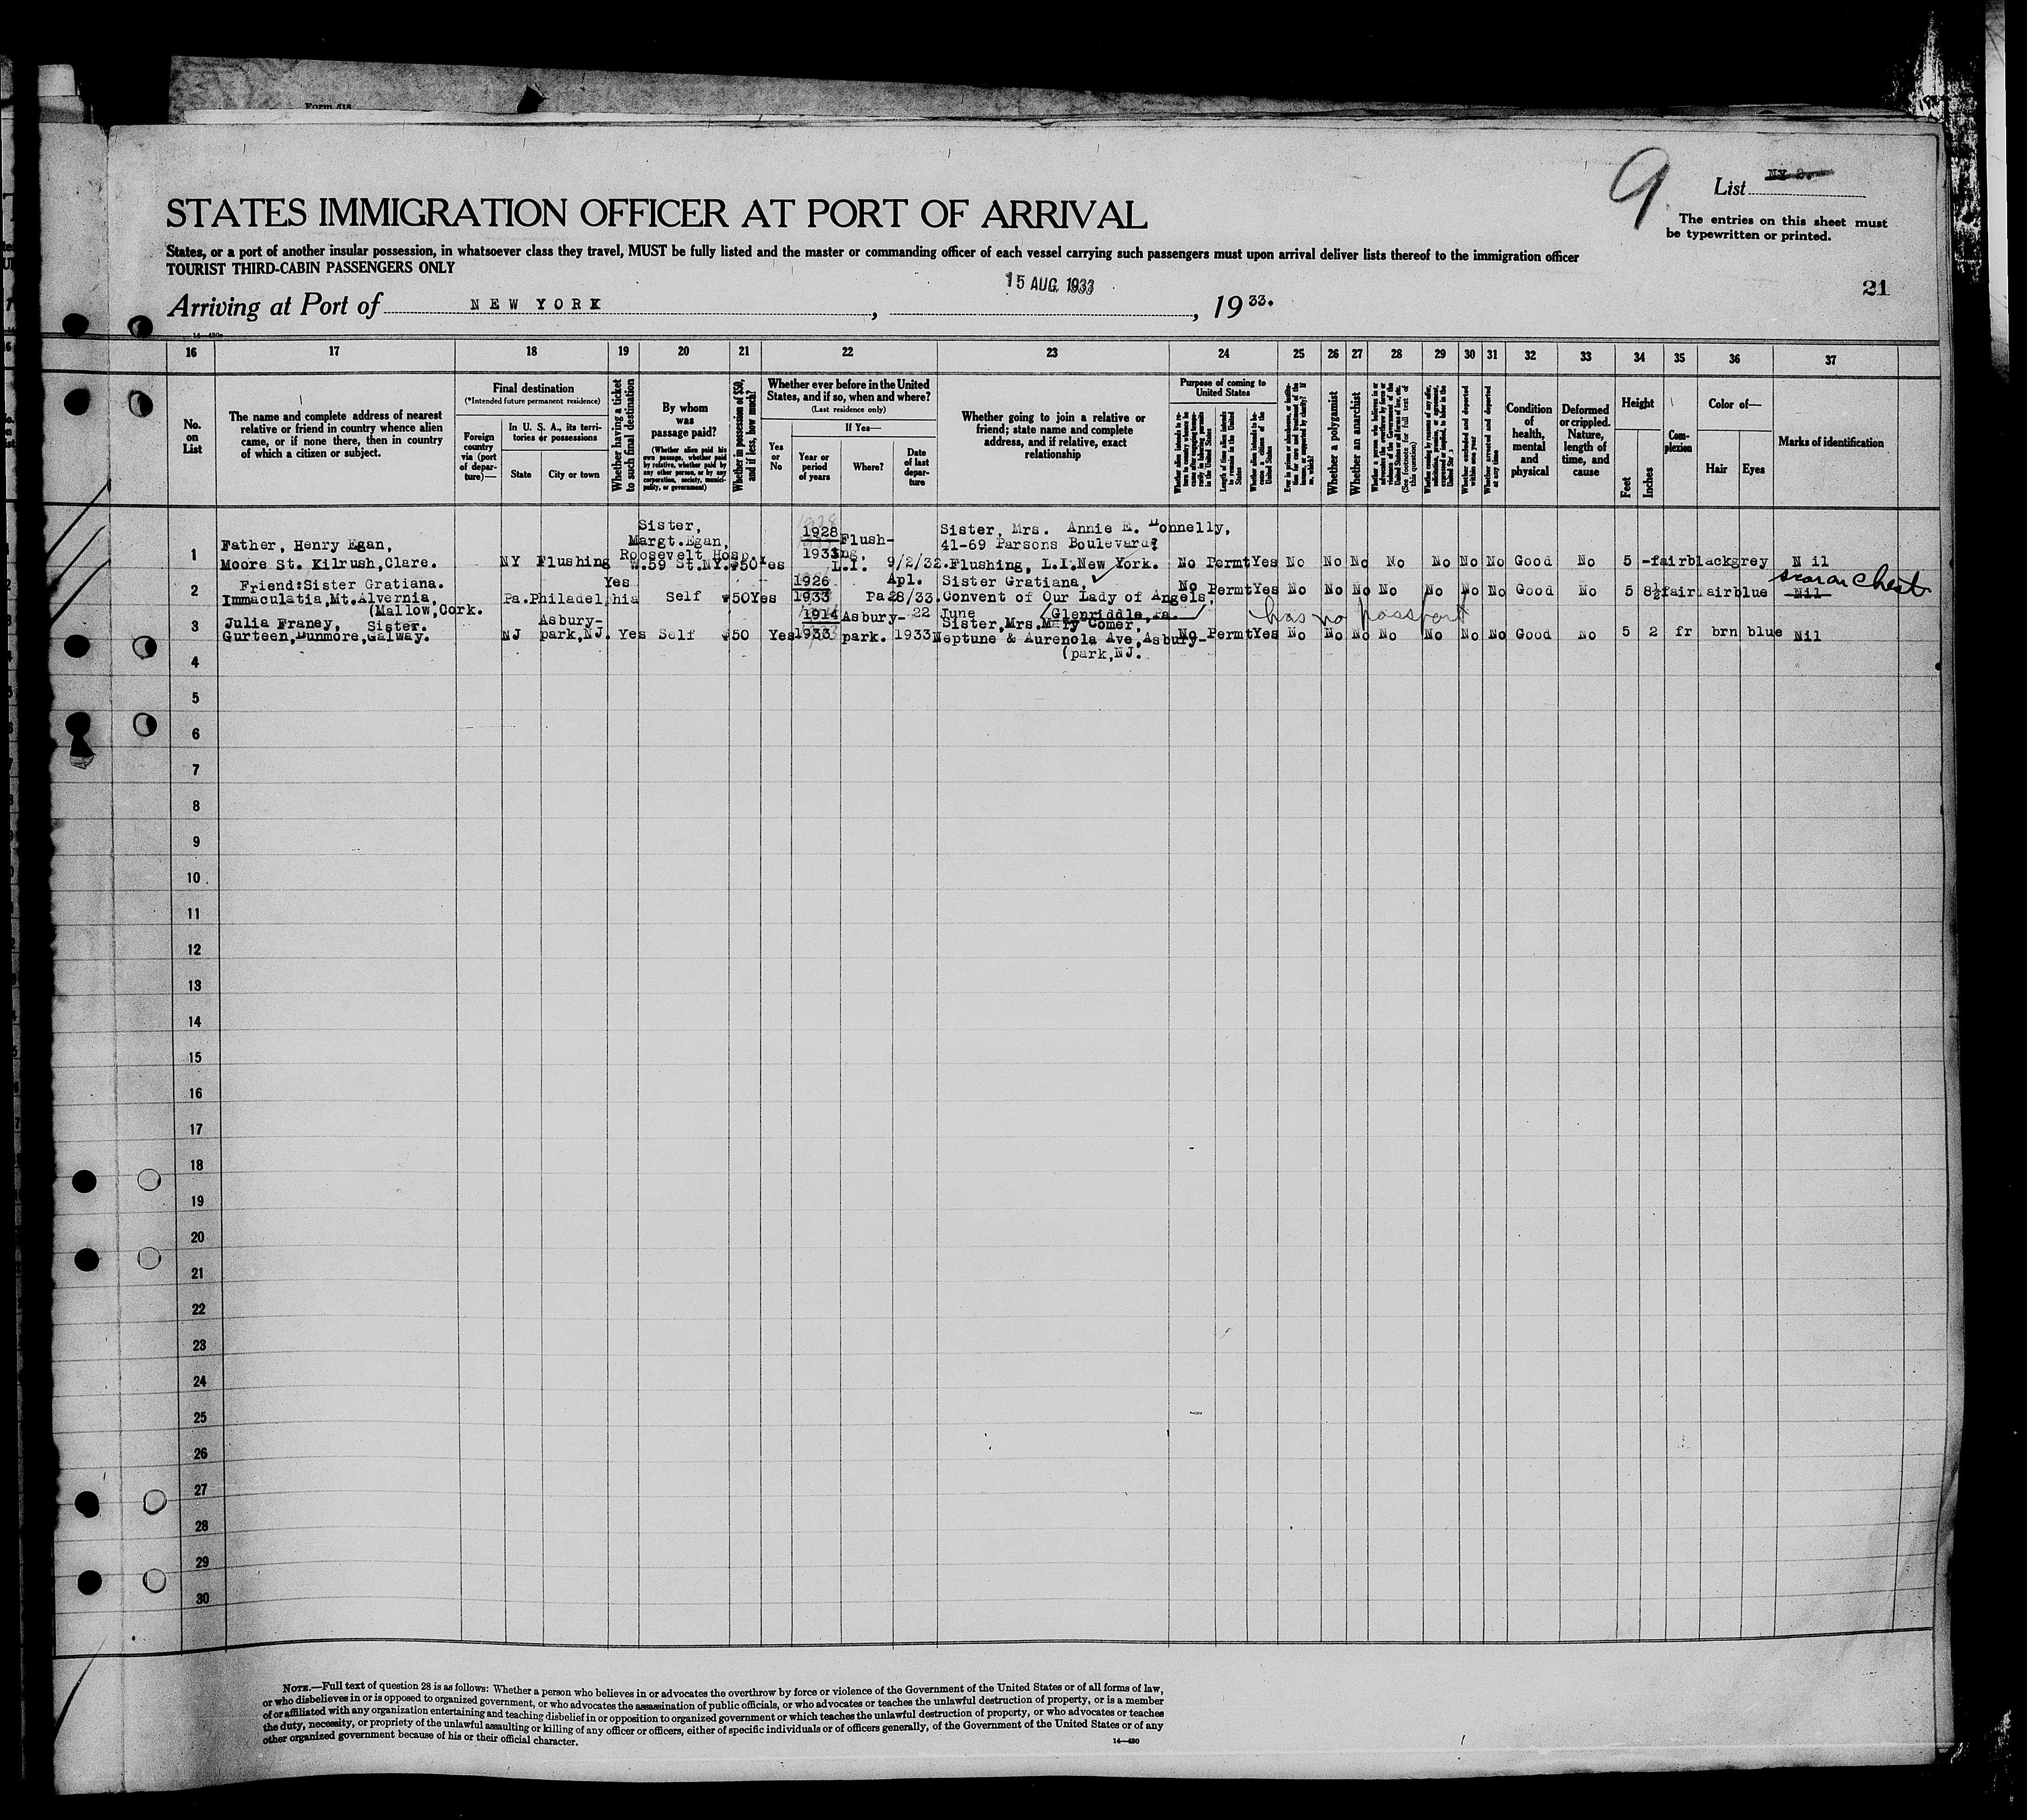 Form 618
9
List NY 2.
The entries on this sheet must
be typewritten or printed.
STATES IMMIGRATION OFFICER AT PORT OF ARRIVAL
States, or a port of another insular possession, in whatsoever class they travel, MUST be fully listed and the master or commanding officer of each vessel carrying such passengers must upon arrival deliver lists thereof to the immigration officer
TOURIST THIRD-CABIN PASSENGERS ONLY
15 AUG 1933
21
Arriving at Port of NEW YORK, , 1933.
16 17 18 19 20 21 22 23 24 25 26 27 28 29 30 31 32 33 34 35 36 37
No. on List
The name and complete address of nearest
relative or friend in country whence alien
came, or if none there, then in country
of which a citizen or subject.
Final destination
(*Intended future permanent residence)
Foreign country via (port of departure)—
In U. S. A., its territories or possessions
State
City or town
Whether having a ticket to such final destination
By whom was passage paid?
(Whether alien paid his own passage, whether paid by relative, whether paid by any other person, or by any corporation, society, municipality, or government)
Whether in possession of $50, and if less, how much?
Whether ever before in the United
States, and if so, when and where?
(Last residence only)
Yes or No
If Yes—
Year or period of years
Where?
Date of last departure
Whether going to join a relative or
friend; state name and complete
address, and if relative, exact
relationship
Purpose of coming to United States
Length of time alien intends to remain in the United States
Whether alien intends to become a citizen of the United States
Whether a polygamist
Whether an anarchist
Whether excluded and deported within one year
Whether arrested and deported at any time
Condition of health, mental and physical
Deformed or crippled. Nature, length of time, and cause
Height
Feet
Inches
Complexion
Color of—
Hair
Eyes
Marks of identification
1
Father, Henry Egan,
Moore St. Kilrush,Clare.
NY Flushing
Sister,
Margt.Egan,
Roosevelt Hosp.
W.59 St.NY.
$50
Yes
1928
1933
Flush-
ing.
L.I.
9/2/32.
Sister, Mrs. Annie E. Donnelly,
41-69 Parsons Boulevard
Flushing, L.I.New York.
No Permt Yes No No No No No No No Good No 5 - fair black grey Nil
2
Friend:Sister Gratiana.
Immaculatia,Mt.Alvernia,
(Mallow,Cork.
Pa. Philadelphia
Yes
Self
$50
Yes
1926
1933
Pa.
Apl.
28/33.
Sister Gratiana,
Convent of Our Lady of Angels,
Glenriddle,Pa.
No Permt Yes No No No No No No No Good No 5 8½ fair fair blue Nil
scar on chest
has no passport
3
Julia Franey, Sister.
Gurteen,Dunmore,Galway.
NJ
Asbury-
park,NJ.
Yes Self $50 Yes
1914
1933
Asbury-
park.
22 June
1933
Sister,Mrs.Mary Comer,
Neptune & Aurenola Ave,Asbury-
(park,NJ.
No Permt Yes No No No No No No No Good No 5 2 fr brn blue Nil
4
5
6
7
8
9
10
11
12
13
14
15
16
17
18
19
20
21
22
23
24
25
26
27
28
29
30
NOTE.—Full text of question 28 is as follows: Whether a person who believes in or advocates the overthrow by force or violence of the Government of the United States or of all forms of law,
or who disbelieves in or is opposed to organized government, or who advocates the assassination of public officials, or who advocates or teaches the unlawful destruction of property, or is a member
of or affiliated with any organization entertaining and teaching disbelief in or opposition to organized government or which teaches the unlawful destruction of property, or who advocates or teaches
the duty, necessity, or propriety of the unlawful assaulting or killing of any officer or officers, either of specific individuals or of officers generally, of the Government of the United States or of any
other organized government because of his or their official character.
14—430